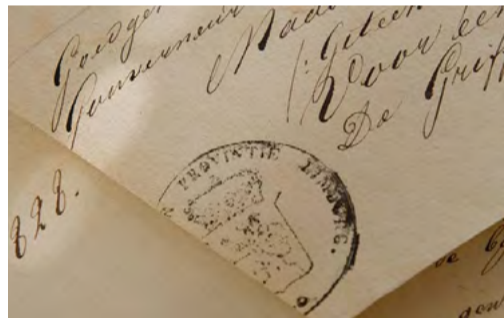 Goedge
Gouverneur
Made
/: Geteek
Voor een
De Grif
PROVINTIE LIMBURG.
828.
de